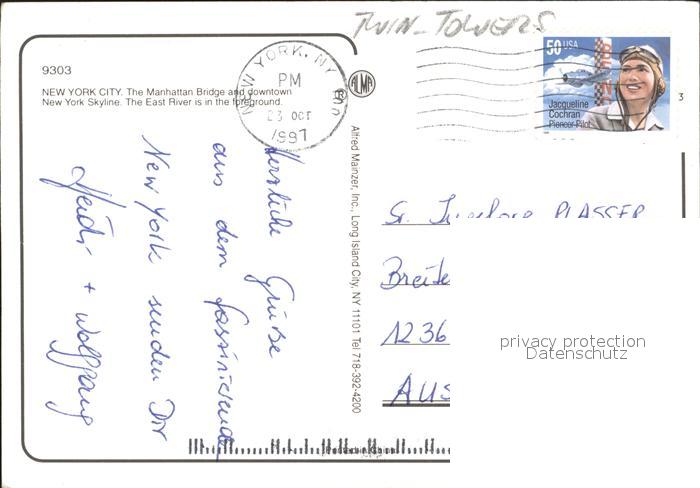 TWIN-TOWERS
9303
NEW YORK CITY. The Manhattan Bridge and downtown
New York Skyline. The East River is in the foreground.
NEW YORK, NY
PM
23 OCT
1997
ALMA
50 USA
Jacqueline
Cochran
Pioneer Pilot
3
Herzliche Grüße
aus dem faszinierenden
New York senden Dir
Heidi + Wolfgang
Alfred Mainzer, Inc., Long Island City, NY 11101 Tel 718-392-4200
PLASSER
Breite
1236
AUS
privacy protection
Datenschutz